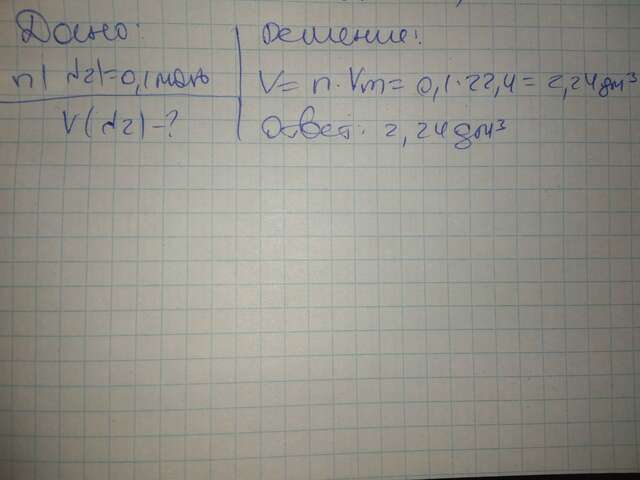 Дано:
n(N2)=0,1моль
V(N2)-?
Решение:
V= n·Vm= 0,1·22,4= 2,24дм³
Ответ: 2,24дм³